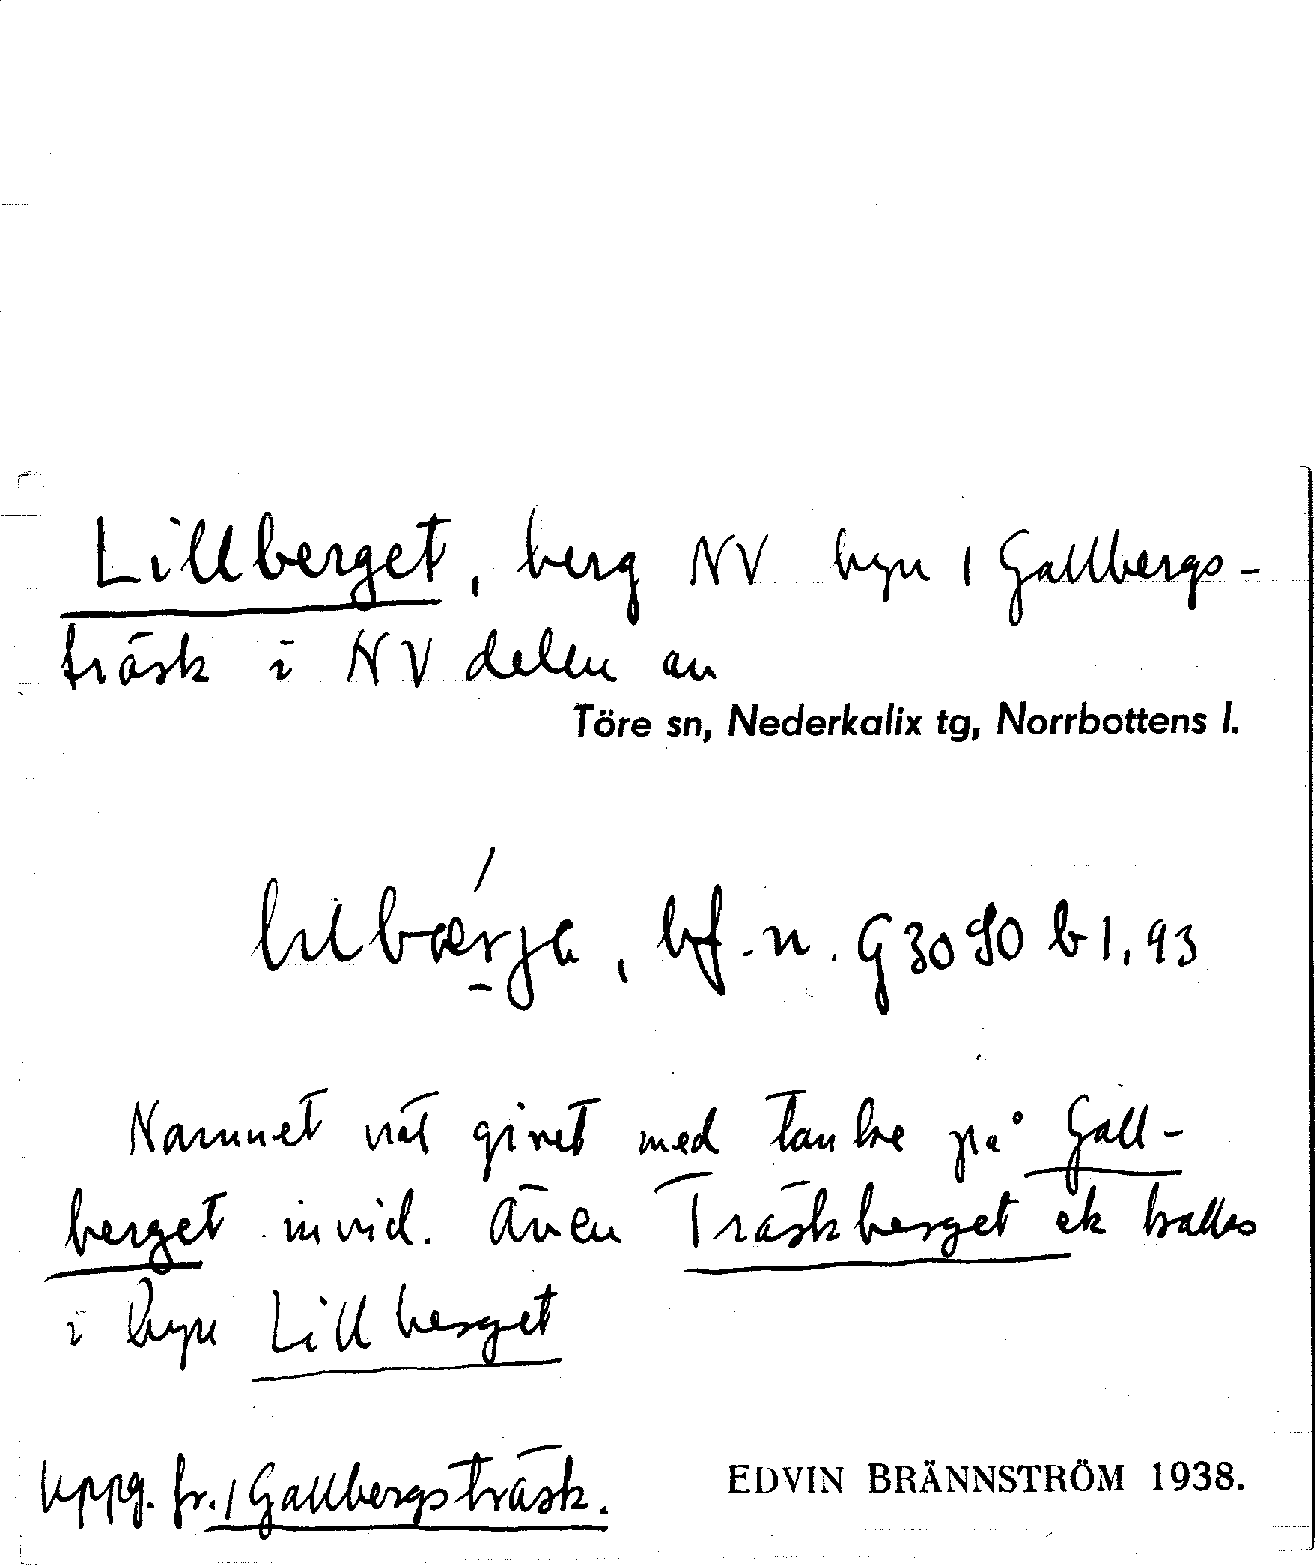 Lillberget, berg NV byn 1 Gallbergs-
träsk i NV delen av
Töre sn, Nederkalix tg, Norrbottens l.
lilbærja, bf. n. G 30 SO b 1, 93
Namnet vät givet med tanke på Gall-
berget invid. Även Träskberget ek kallas
i byn Lillberget
Uppg. fr. 1 Gallbergsträsk.
EDVIN BRÄNNSTRÖM 1938.